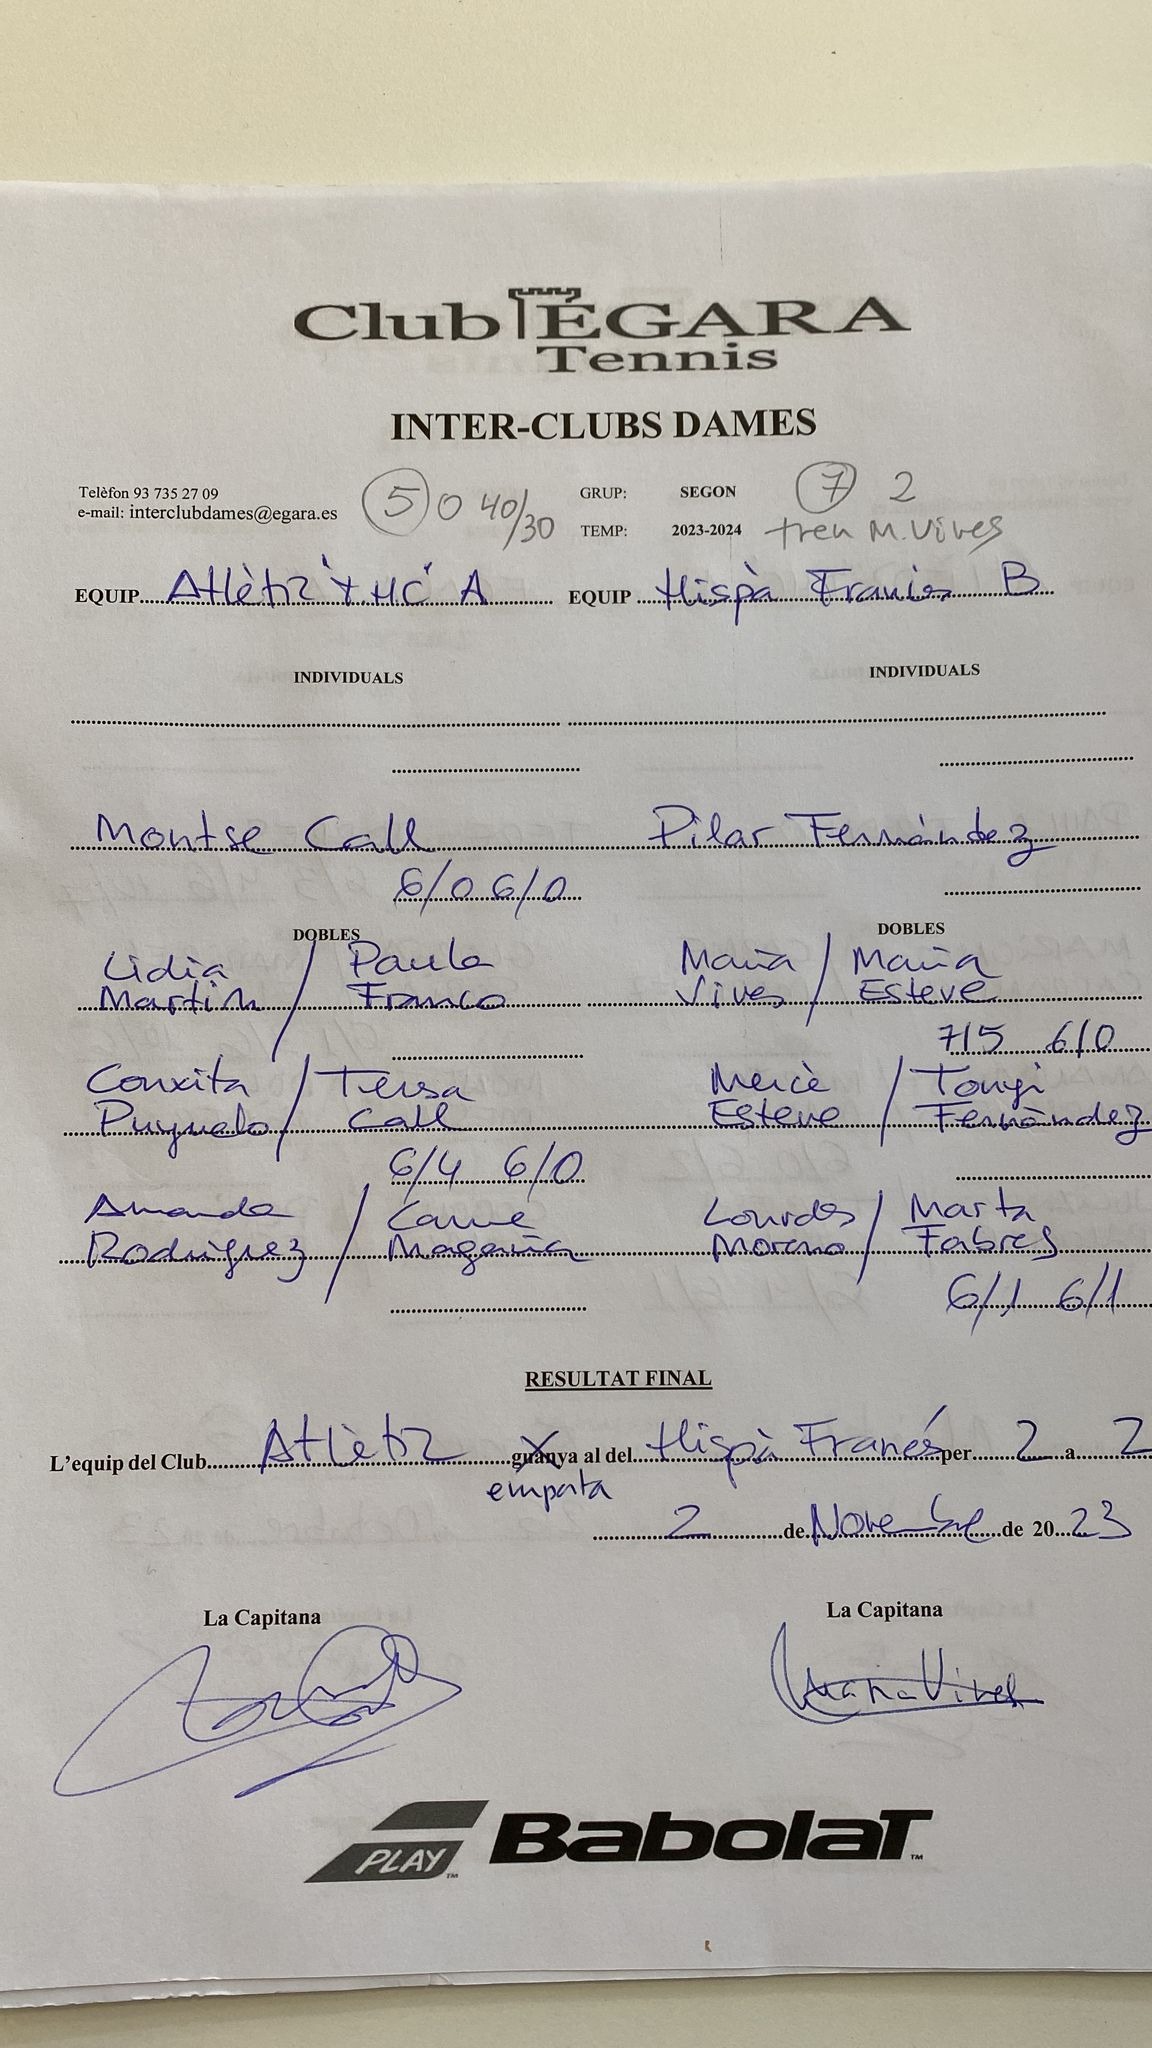 Club ÉGARA
Tennis
INTER-CLUBS DAMES
Telèfon 93 735 27 09
e-mail: interclubdames@egara.es
5 0 40/30
GRUP: SEGON 7 2
TEMP: 2023-2024 tren M. Vives
EQUIP Atlètiz THC A EQUIP Hispà Francès B
INDIVIDUALS INDIVIDUALS
Montse Call Pilar Fernández
6/0 6/0
DOBLES DOBLES
Lidia / Paula Maria / Maria
Martin Franco Vives Esteve
7/5 6/0
Conxita / Teresa Mercè / Tonyi
Puyuelo Call Esteve Fernández
6/4 6/0
Amanda / Carme Lourdes / Marta
Rodriguez Magaña Moreno Fabres
6/1 6/1
RESULTAT FINAL
L'equip del Club Atlètiz guanya al del Hispà Francés per 2 a 2
empata
2 de Novembre de 2023
La Capitana La Capitana
Maria Vives
PLAY Babolat